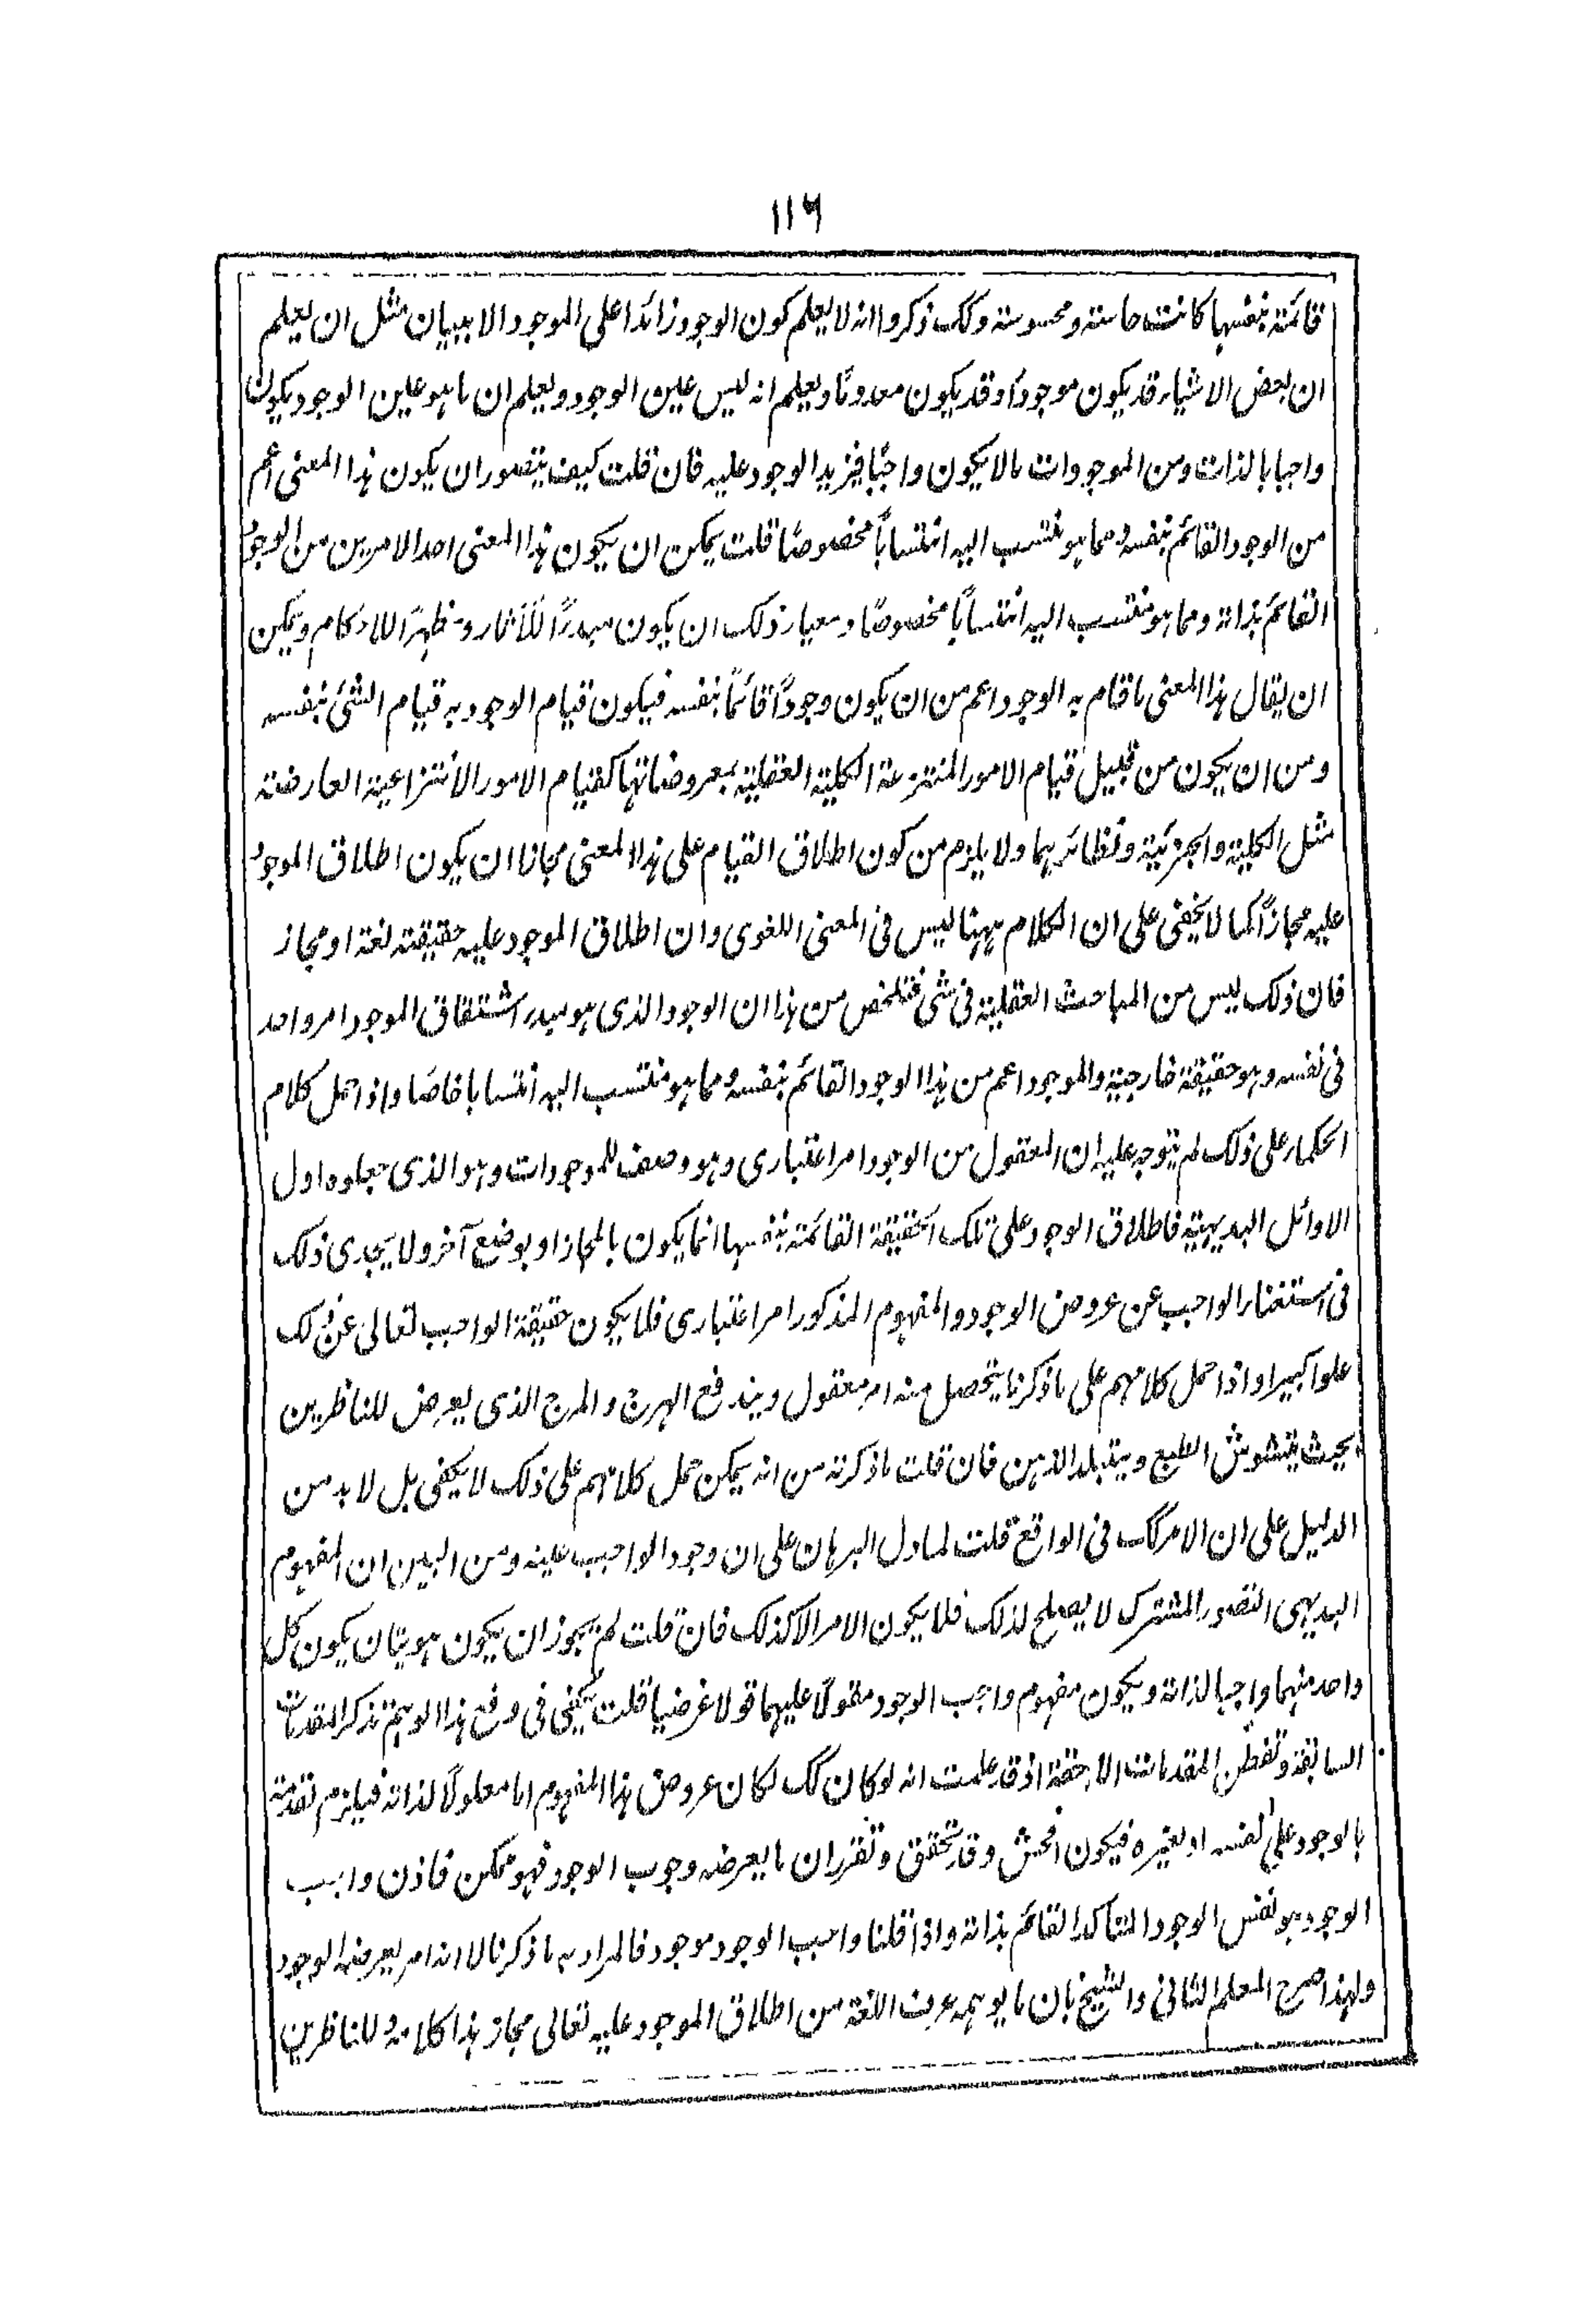 ١١٦
قائمة بنفسها كانت حاسة ومحسوسة وكك ذكروا انه لا يعلم كون الوجود زائدا على الموجود الا ببيان مثل ان يعلم
ان بعض الاشياء قد يكون موجودًا وقد يكون معدومًا ويعلم انه ليس عين الوجود ويعلم ان ما هو عين الوجود يكون
واجبا بالذات ومن الموجودات ما لا يكون واجبًا فيزيد الوجود عليه فان قلت كيف يتصور ان يكون هذا المعنى اعم
من الوجود القائم بنفسه ومما هو منتسب اليه انتسابًا مخصوصًا قلت يمكن ان يكون هذا المعنى احد الامرين من الوجود
القائم بذاته ومما هو منتسب اليه انتسابًا مخصوصًا ومعيار ذلك ان يكون مبدءًا للآثار ومظهرا للاحكام ويمكن
ان يقال هذا المعنى ما قام به الوجود اعم من ان يكون وجودًا قائمًا بنفسه فيكون قيام الوجود به قيام الشئ بنفسه
ومن ان يكون من قبيل قيام الامور المنتزعة الكلية العقلية بمعروضاتها كقيام الامور الانتزاعية العارضة
مثل الكلية والجزئية ونظائرهما ولا يلزم من كون اطلاق القيام على هذا المعنى مجازا ان يكون اطلاق الموجود
عليه مجازًا كما لا يخفى على ان الكلام ههنا ليس فى المعنى اللغوى وان اطلاق الموجود عليه حقيقة لغة او مجاز
فان ذلك ليس من المباحث العقلية فى شئ فتلخص من هذا ان الوجود الذى هو مبدء اشتقاق الموجود امر واحد
فى نفسه وهو حقيقة خارجية والموجود اعم من هذا الوجود القائم بنفسه ومما هو منتسب اليه انتسابا خاصا واذا حمل كلام
الحكماء على ذلك لم يتوجه عليه ان المعقول من الوجود امر اعتبارى وهو وصف للموجودات وهو الذى جعلوه اول
الاوائل البديهية فاطلاق الوجود على تلك الحقيقة القائمة بنفسها انما يكون بالمجاز او بوضع آخر ولا يجدى ذلك
فى استغناء الواجب عن عروض الوجود والمفهوم المذكور امر اعتبارى فلا يكون حقيقة الواجب تعالى عن ذلك
علوا كبيرا واذا حمل كلامهم على ما ذكرنا يتحصل منه امر معقول ويندفع الهرج والمرج الذى يعرض للناظرين
بحيث يتشوش الطبع ويتبلد الذهن فان قلت ما ذكرته من انه يمكن حمل كلامهم على ذلك لا يكفى بل لا بد من
الدليل على ان الامر كك فى الواقع قلت لما دل البرهان على ان وجود الواجب عينه ومن البين ان المفهوم
البديهى التصور المشترك لا يصلح لذلك فلا يكون الامر الا كذلك فان قلت لم يجوز ان يكون هويتان يكون كل
واحد منهما واجبا لذاته ويكون مفهوم واجب الوجود مقولًا عليهما قولا عرضيا قلت يكفى فى دفع هذا الوهم تذكر المقدمات
السابقة وتفطن المقدمات اللاحقة اذ قد علمت انه لو كان كك لكان عروض هذا المفهوم اما معلولًا لذاته فيلزم تقدمه
بالوجود على نفسه او لغيره فيكون افحش وقد تحقق وتقرر ان ما يعرضه وجوب الوجود فهو ممكن فاذن واجب
الوجود هو نفس الوجود المتأكد القائم بذاته واذا قلنا واجب الوجود موجود فالمراد به ما ذكرنا لا انه امر يعرضه الوجود
ولهذا صرح المعلم الثانى والشيخ بان ما يوهمه عرف اللغة من اطلاق الموجود عليه تعالى مجاز هذا كلامه وللناظرين